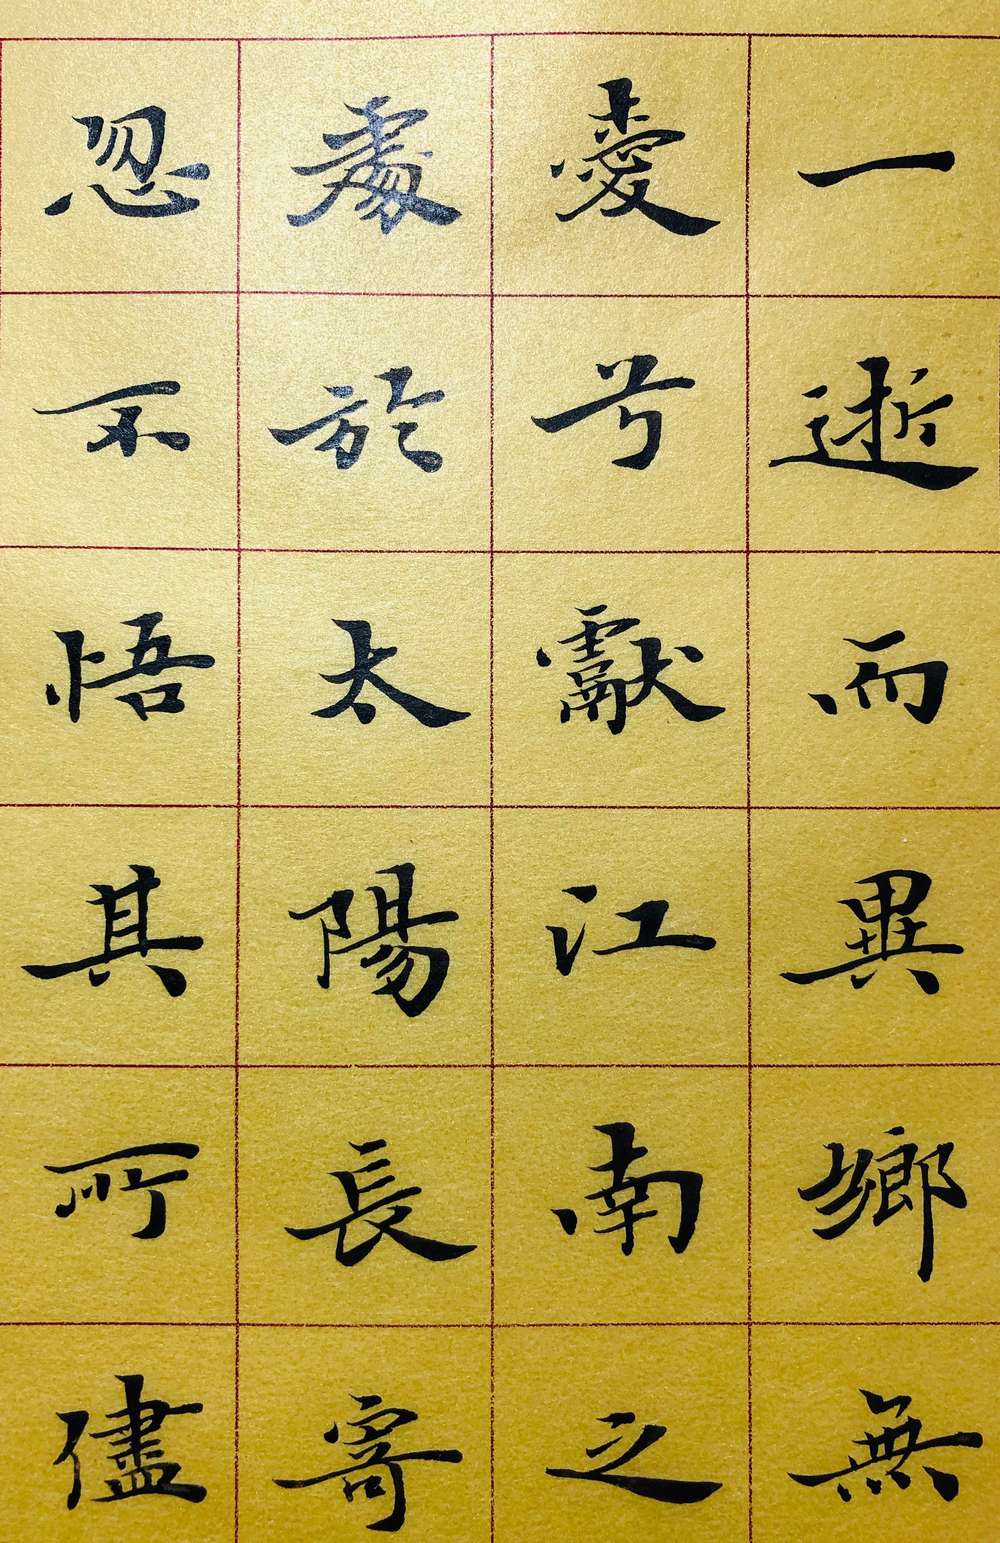 一逝而異鄉無
愛兮獻江南之
處於太陽長寄
忽不悟其所儘